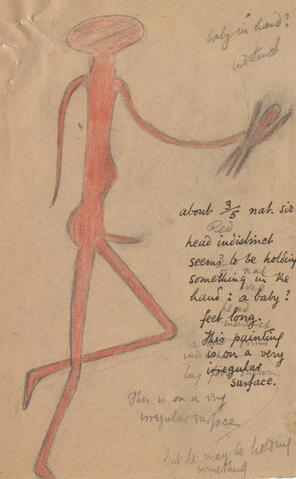 baby in hand?
indistinct
about 3/5 nat. siz
Red
head indistinct
seems to be holding
something in the
hand: a baby?
feet long.
This painting
is on a very
irregular
surface.
This is on a very
irregular surface
but he may be holding
something